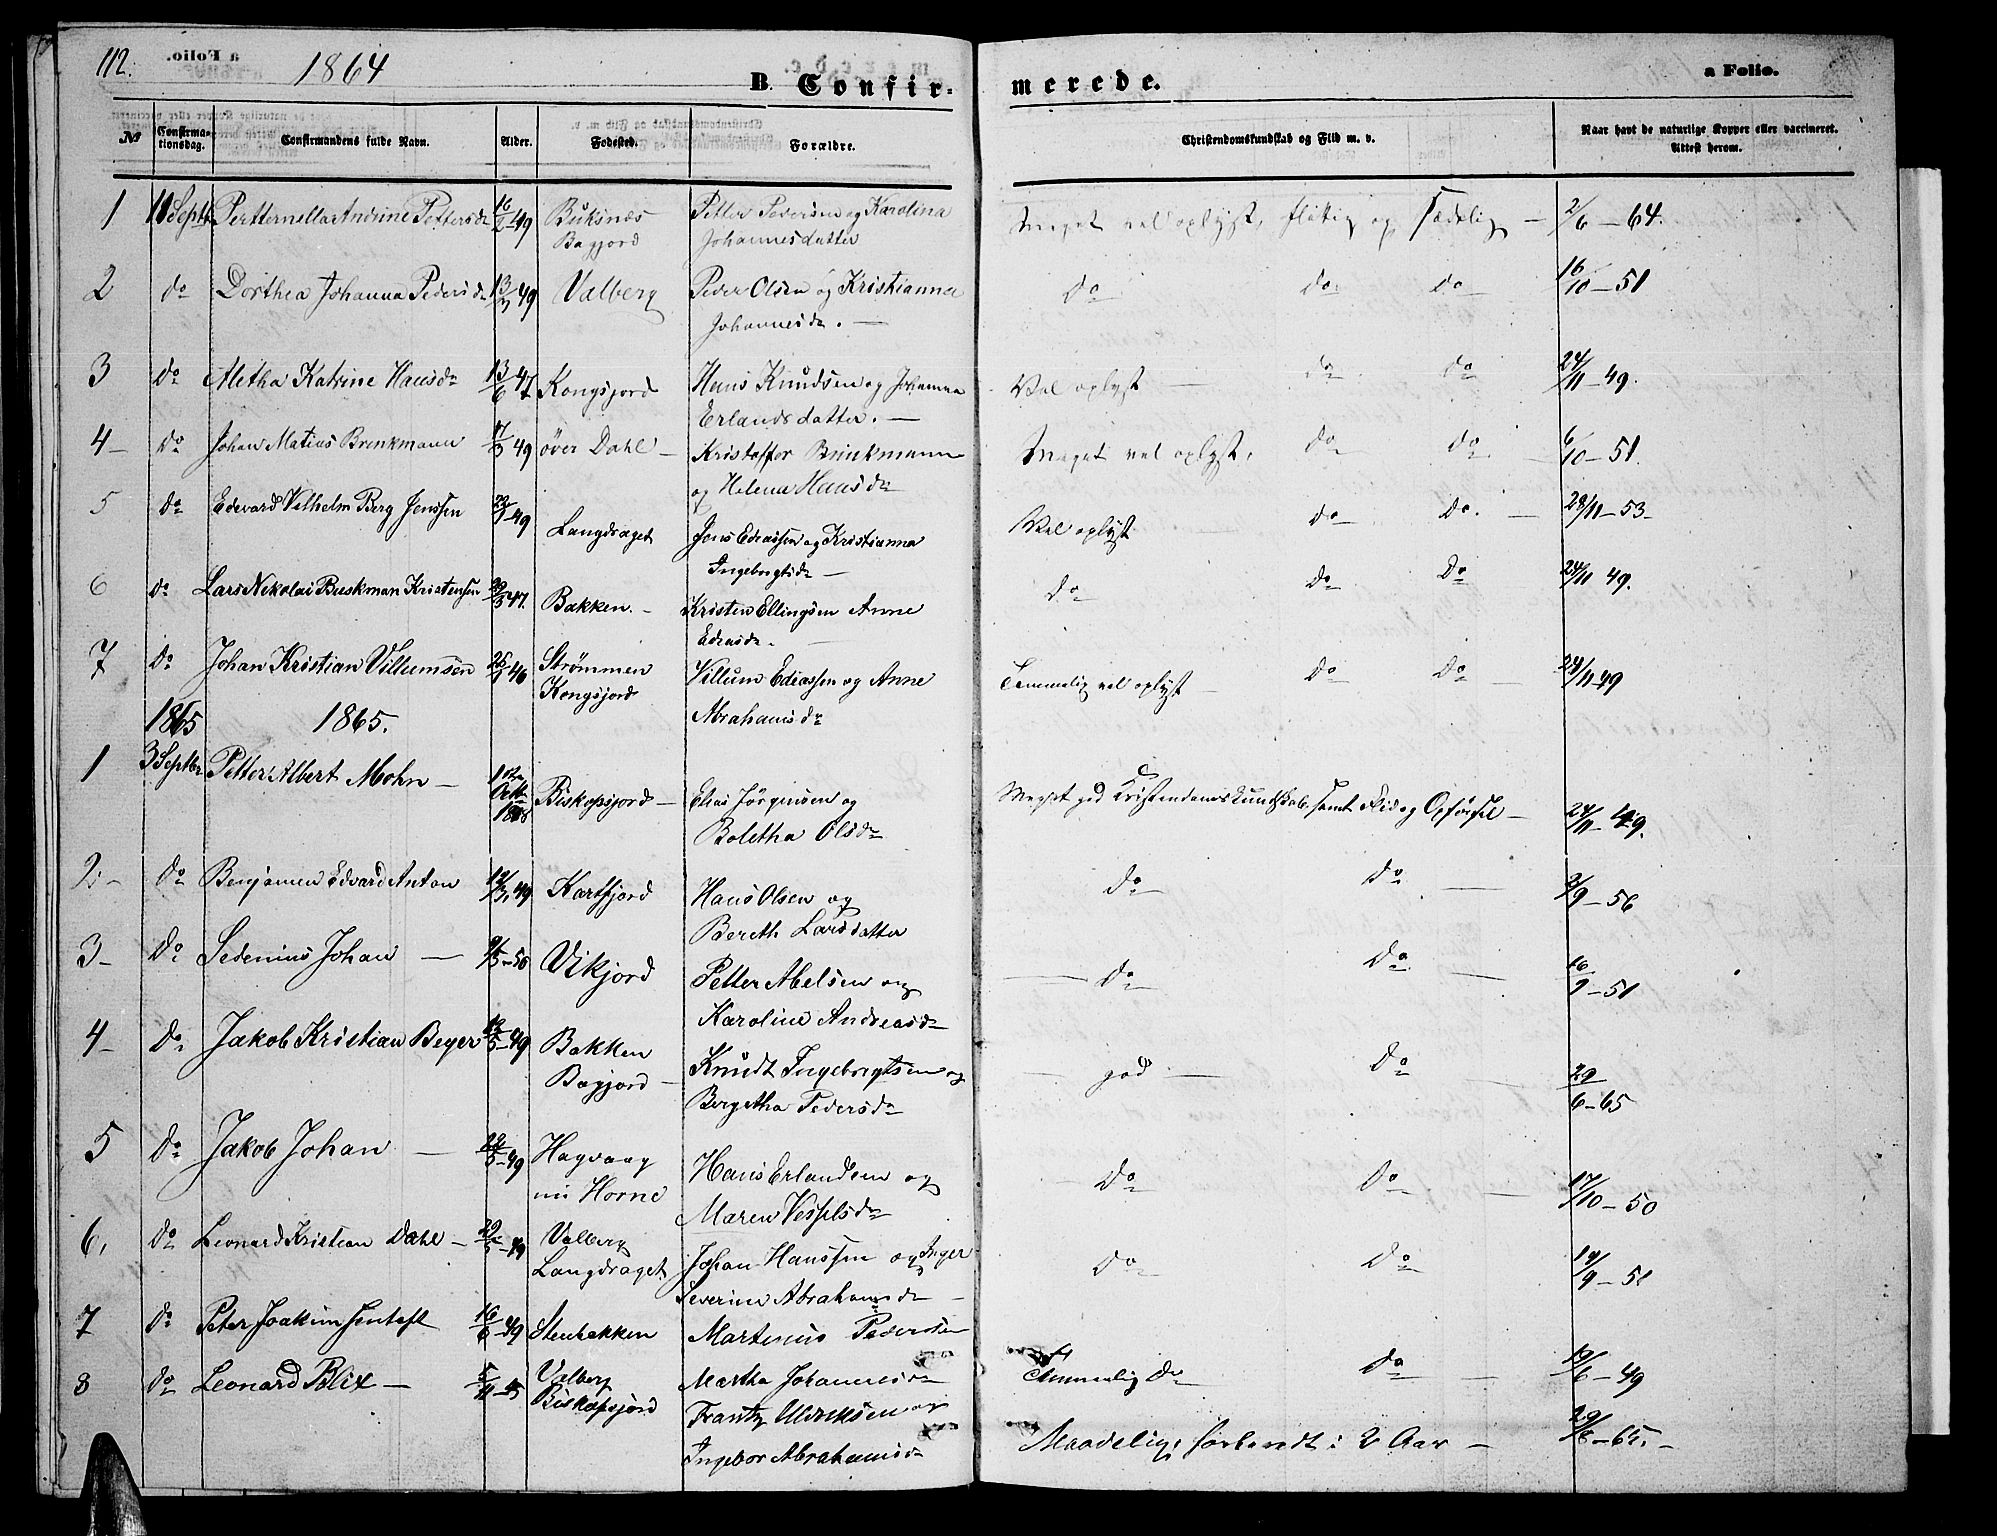 112.
a Folio.
1864
B. Confir-
merede.
a Folio.
№ Confirma-tionsdag. Confirmandens fulde Navn. Alder. Fødested. Forældre. Christendomskundskab og Flid m. v. Naar havt de naturlige Kopper eller vaccineret. Attest herom.
1 11 Septb Pertternella Andrine Pettersdr 16/2 49 Buksnæs Petter Pedersen og Karolina Meget vel oplyst, flittig og sædelig — 2/6 — 64.
Bagjord Johannesdatter
2 do Dorthea Johanna Pedersdr 13/3 49 Valberg Peder Olsen og Kristianna do do do 16/10 — 51
Johannesdr. —
3 do Metha Katrine Hansdr 13/6 47 Kongsjord Hans Knudsen og Johanna Vel oplyst — do do 24/11 — 49.
Erlandsdatter. —
4 — do Johan Matias Brinkmann 17/3 49 øver Dahl — Kristoffer Brinkmann Meget vel oplyst, do do 6/10 — 51.
og Helena Hansdr
5 do Edevard Vilhelm Berg Jenssen 49 Langdraget Jens Edrassen og Kristianna Vel oplyst do do. — 28/11 — 53 —
Ingebrigtsdr —
6 do Lars Nikolai Buskman Kristensen 47. Bakken. — Kristen Ellingsen Anne do do do 24/11 49.
Edrasdr. —
7 do Johan Kristian Villumsen 46 Strømmen Villum Edrassen og Anne Temmelig vel oplyst — do do — 24/11 49
Kongsjord Abrahamsdr
1865 1865.
1 3 Septbr Petter Albert Mohn — 1ste Octb Biskopsjord — Elias Jørgensen og Meget god Kristendomskundskab, samt Flid og Opførsel — 24/11 — 49.
Boletha Olsdr
2. — do Benjamen Edvard Anton 12/3, 49 Kartfjord Hans Olsen og do do. — 2/9 — 56
Bereth Larsdatter
3 — do Sedenius Johan — 9/5 — 50 Vikjord Petter Abelsen og — do do. — 16/9 — 51
Karoline Andreasdr
4 — do Jakob Kristian Beyer 49 Bakken Knudt Ingebrigtsen og — god — do — 29/6 — 65
Bagjord — Bergetha Pedersdr
5 do Jakob Johan — 49 Hagvaag Hans Erlandsen og — do do — — 17/10 — 50
Horne Maren Vesselsdr
6, do Leonard Kristian Dahl — 49 Valberg Johan Hanssen og Inger do do 19/9 — 51
Langdraget Severine Abrahamsdr —
7 do Peter Joakim 16/6 49 Stenbakken Martinus Pedersen Temmelig do do — 19/6 — 49
Martha Johannesdr
8 do Leonard Blix — Valberg Frantz Ulriksen og Maadelig, forberedt i 2 Aar — 29/6 — 65. —
Biskopsjord Ingebor Abrahamsdr